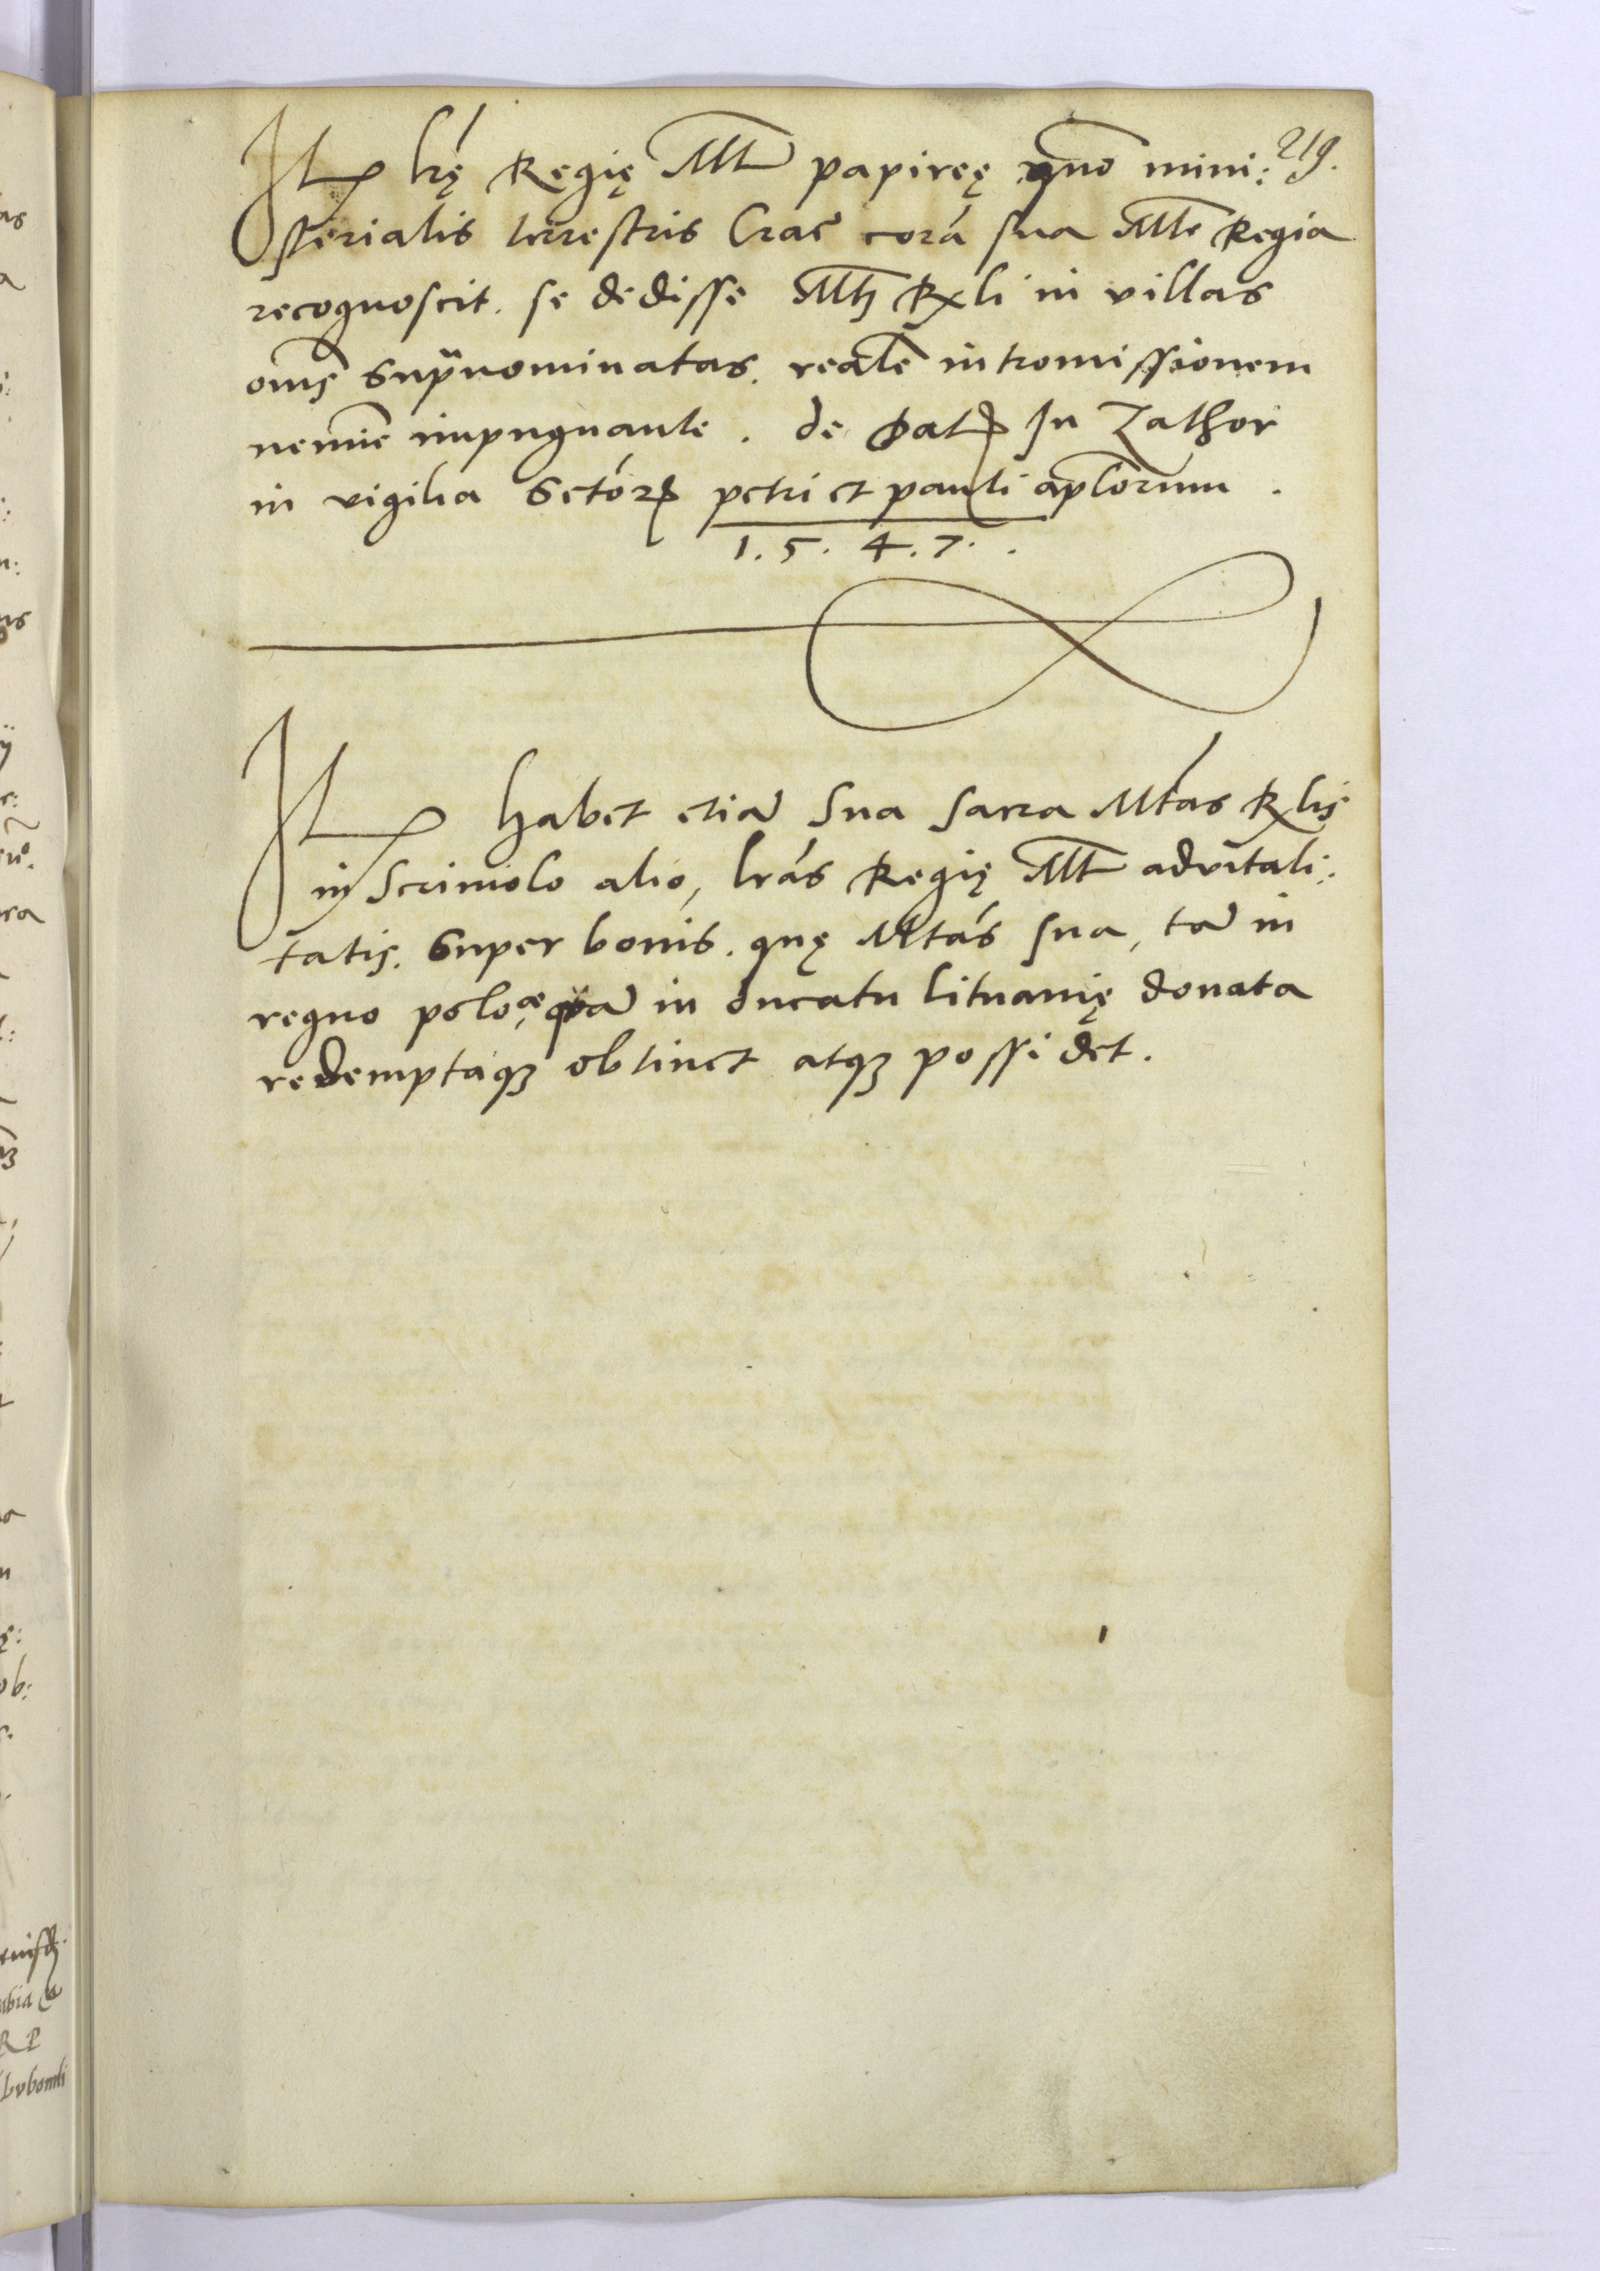 219.
It lrę Regię Mtt papireę quo mini:
sterialis terrestris Crac̄ corā sua Mte Regia
recognoscit. se dedisse Mti Rli in villas
om̄s supranominatas. realē intromissionem
nemīe impugnante. de Dat In Zathor
in vigilia Sctōr petri et pauli aplorum.
1.5.4.7..
It habet etiā Sua Sacra Mtas Rlis
in Scriniolo alio, lrās Regię Mtt advitali:
tatis. Super bonis. quę Mtās sua, tā in
regno poloæ, quā in ducatu lituanię donata
redemptaq3 obtinet atq3 possidet.